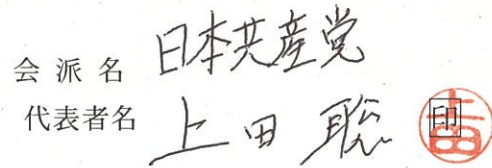 会派名 日本共産党
代表者名 上田 聡 印